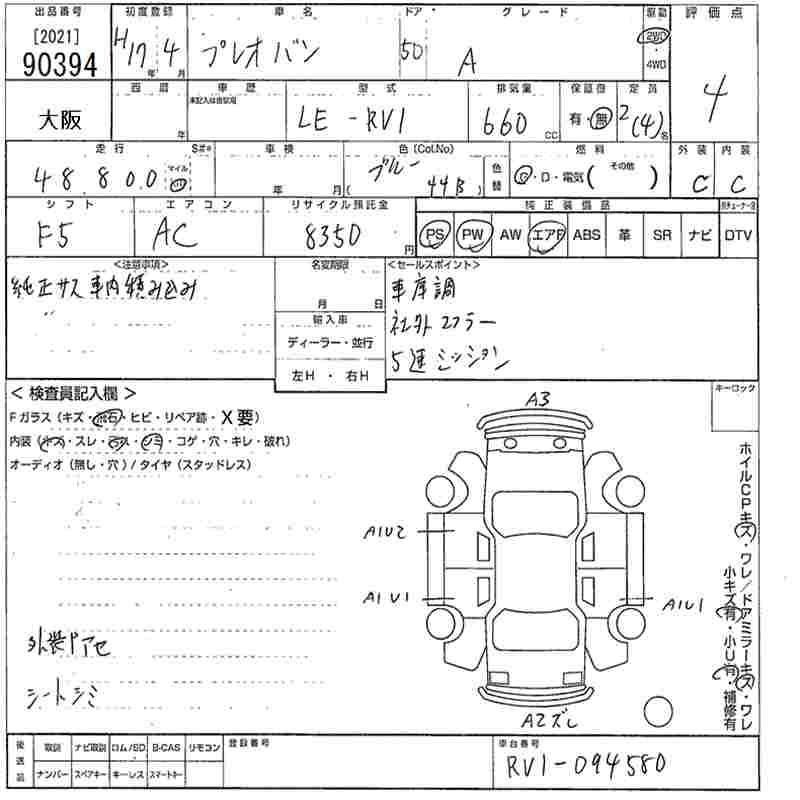 出品番号 初度登録 車名 ドア・ グレード 駆動 評価点
[2021] 90394 H17年4月 プレオバン 50 A 2WD 4WD 4
大阪 西暦 年 車歴 未記入は自家用 型式 LE-RV1 排気量 660 CC 保証書 有・無 定員 2(4)名
走行 S#* 車検 色(Col.No) 燃料 外装 内装
48800 マイル 年 月 ブルー ( 44B ) 色替 G・D・電気( その他 ) C C
シフト エアコン リサイクル預託金 純正装備品
F5 AC 8350円 PS PW AW エアB ABS 革 SR ナビ DTV
<注意事項> 名変期限 <セールスポイント>
純正サス車内積み込み 月 日 車庫調
〃 輸入車 社外マフラー
ディーラー・並行 5速ミッション
左H・右H
<検査員記入欄> キーロック
Fガラス(キズ・飛石・ヒビ・リペア跡・X要)
内装(キズ・スレ・ラス・シミ・コゲ・穴・キレ・破れ)
オーディオ(無し・穴)/タイヤ(スタッドレス)
A3
A1U2
A1U1
A1U1
A2ズレ
ホイルCPキズ・ワレ/ドアミラーキズ・ワレ
小キズ有・小U有・補修有
外装アセ
シートシミ
後送品 取説 ナビ取説 ロム/SD B-CAS リモコン 登録番号 車台番号
ナンバー スペアキー キーレス スマートキー RV1-094580